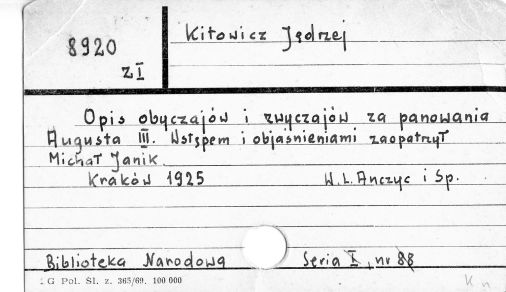 8920
zI
Kitowicz Jędrzej
Opis obyczajów i zwyczajów za panowania
Augusta III. Wstępem i objaśnieniami zaopatrzył
Michał Janik
Kraków 1925 W.L. Anczyc i Sp.
Biblioteka Narodowa Seria I, nr 88
G Pol. Śl. z. 365/69. 100 000
Kn